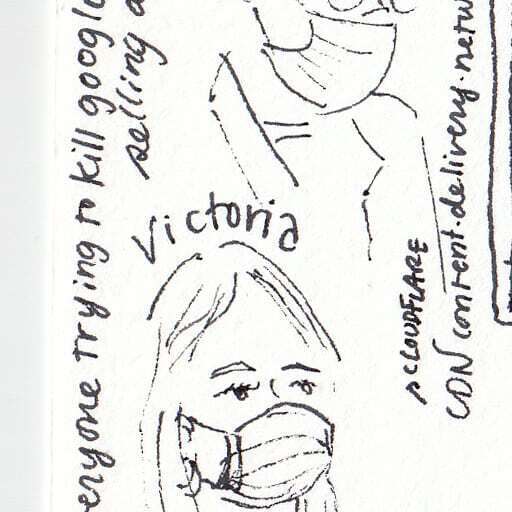 everyone trying to kill google
selling a
Victoria
CLOUDFLARE
CDN content.delivery.netw